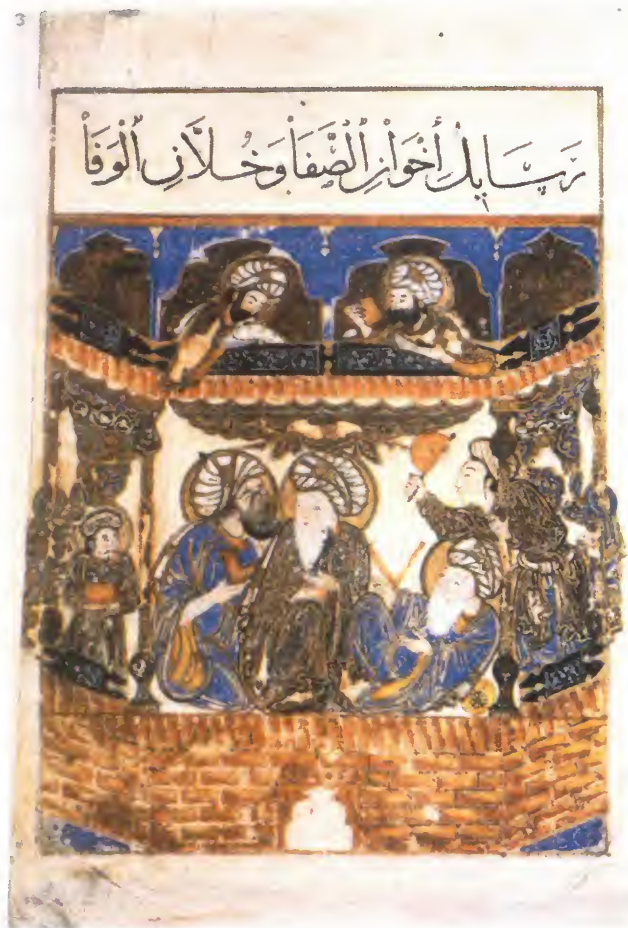 3
رَسَايِلُ أخْوَانِ الصَّفَاَ وَخُلاَّنِ الْوَفَاَ